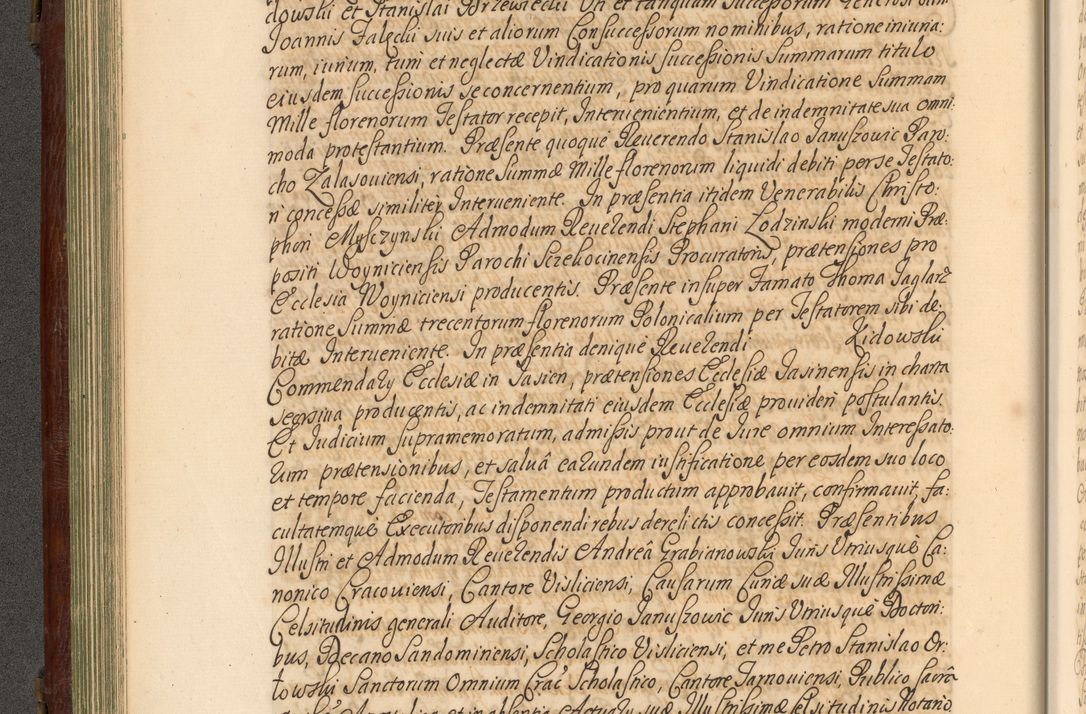 dowski et Stanislai Brzewiecki Uti et tanquam Successorum Generosi olim
Joannis Falęcki suis et aliorum Consuccessorum nominibus, ratione iniuria:
rum, iurium, tum et neglectæ Vindicationis successionis Summarum titulo
eiusdem successionis se concernentium, pro quarum Vindicatione Summam
Mille florenorum Testator recepit, Intervenientium, et de indemnitate sua omni
moda protestantium. Præsente quoque Reuerendo Stanislao Januszowic Paro:
cho Zalasouiensi, ratione Summæ Mille florenorum liquidi debiti per se Testato:
ri concessæ similiter Interueniente. In præsentia itidem Venerabilis Christo:
phori Myszczynski Admodum Reuerendi Stephani Lodzinski moderni Præ:
positi Woyniciensis Parochi Szczekocinensis Procuratoris, prætensiones pro
Ecclesia Woyniciensi producentis. Præsente insuper Famato Thoma Jaglarz
ratione Summæ trecentorum florenorum Polonicalium per Testatorem sibi de:
bitæ Interueniente. In præsentia denique Reuerendi Zidowski
Commendary Ecclesiæ in Jasien, prætensiones Ecclesiæ Jasinensis in charta
segrgiua producentis, ac indemnitati eiusdem Ecclesiæ prouideri postulantis.
Et Judicium supramemoratum, admissis prout de Jure omnium Interessato:
rum prætensionibus, et saluâ earundem iustificatione per eosdem suo loco
et tempore facienda, Testamentum productum approbauit, confirmauit, fa:
cultatemque Executoribus disponendi rebus derelictis concessit. Præsentibus
Illustri et Admodum Reuerendis Andreâ Grabianowski Juris Utriusque Ca:
nonico Cracouiensi, Cantore Visliciensi, Causarum Curiæ suæ Illustrissimæ
Celsitudinis generali Auditore, Georgio Januszowic Juris Utriusque Doctori:
bus, Decano Sandominensi, Scholastico Visliciensi, et me Petro Stanislao Or:
łowski Sanctorum Omnium Crac̃ Scholastico, Cantore Tarnouiensi, Publico sacrâ
Actuary suæ Illustrissimæ Celsitudinis Notario